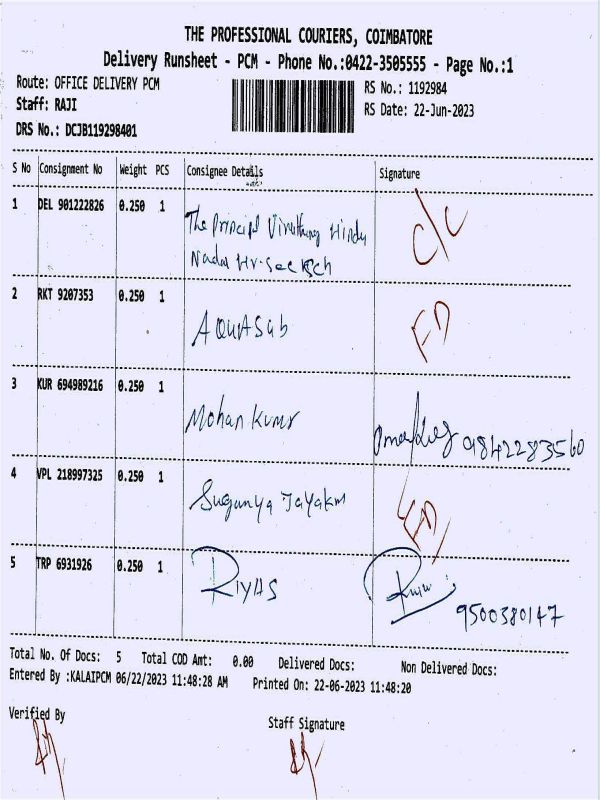 THE PROFESSIONAL COURIERS, COIMBATORE
Delivery Runsheet - PCM - Phone No.:0422-3505555 - Page No.:1
Route: OFFICE DELIVERY PCM
Staff: RAJI
DRS No.: DCJB119298401
RS No.: 1192984
RS Date: 22-Jun-2023
S No Consignment No Weight PCS Consignee Details Signature
1 DEL 901222826 0.250 1 The Principal Hindu C/C
Nadar Hr. Sec Sch
2 RKT 9207353 0.250 1 AQUASub ED
3 KUR 694989216 0.250 1 Mohan Kumr 9842283560
4 VPL 218997325 0.250 1 Suganya Jayakm ED
5 TRP 6931926 0.250 1 RIYAS 9500380147
Total No. Of Docs: 5 Total COD Amt: 0.00 Delivered Docs: Non Delivered Docs:
Entered By :KALAIPCM 06/22/2023 11:48:28 AM Printed On: 22-06-2023 11:48:20
Verified By
Staff Signature